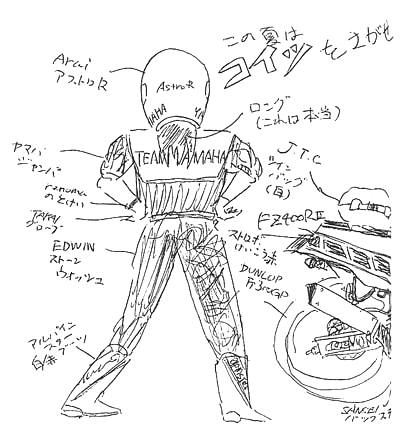 この夏は
コイツをさがせ
Arai
アストロR
Astro-R
YAMAHA
ロング
(これは本当)
ヤマハ
ジャンパ
TEAM YAMAHA
J.T.C
バッグ
(白)
のとけい
グローブ
FZ400RⅡ
EDWIN
ストーン
ウォッシュ
ストロボ
DUNLOP
アルパイン
スター
白赤ブーツ
SANSEI
バックステ